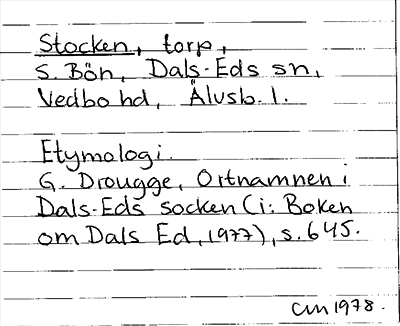 Stocken, torp,
S. Bön, Dals-Eds sn,
Vedbo hd, Älvsb. l.
Etymologi.
G. Drougge, Ortnamnen i
Dals-Eds socken (i: Boken
om Dals Ed, 1977), s. 645.
CM 1978.